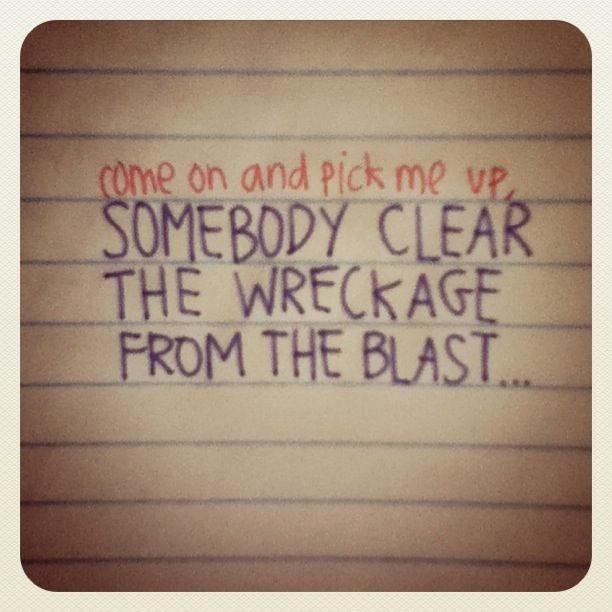 come on and pick me up,
SOMEBODY CLEAR
THE WRECKAGE
FROM THE BLAST...